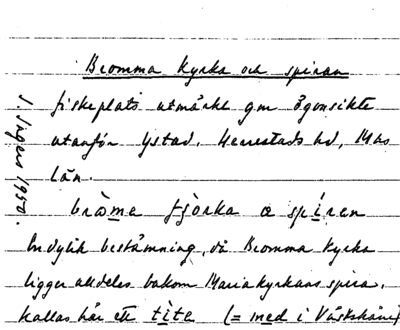 Bromma Kyrka och spiran
fiskeplats utmärkt gm ögonsikte
utanför Ystad, Herrestads hd, Mlms
Län.
bròma fjörka o spíran
En dylik bestämning, då Bromma Kyrka
ligger alldeles bakom Mariakyrkans spira,
kallas här ett tite (= med i Västskåne)
S. Ingers 1950.